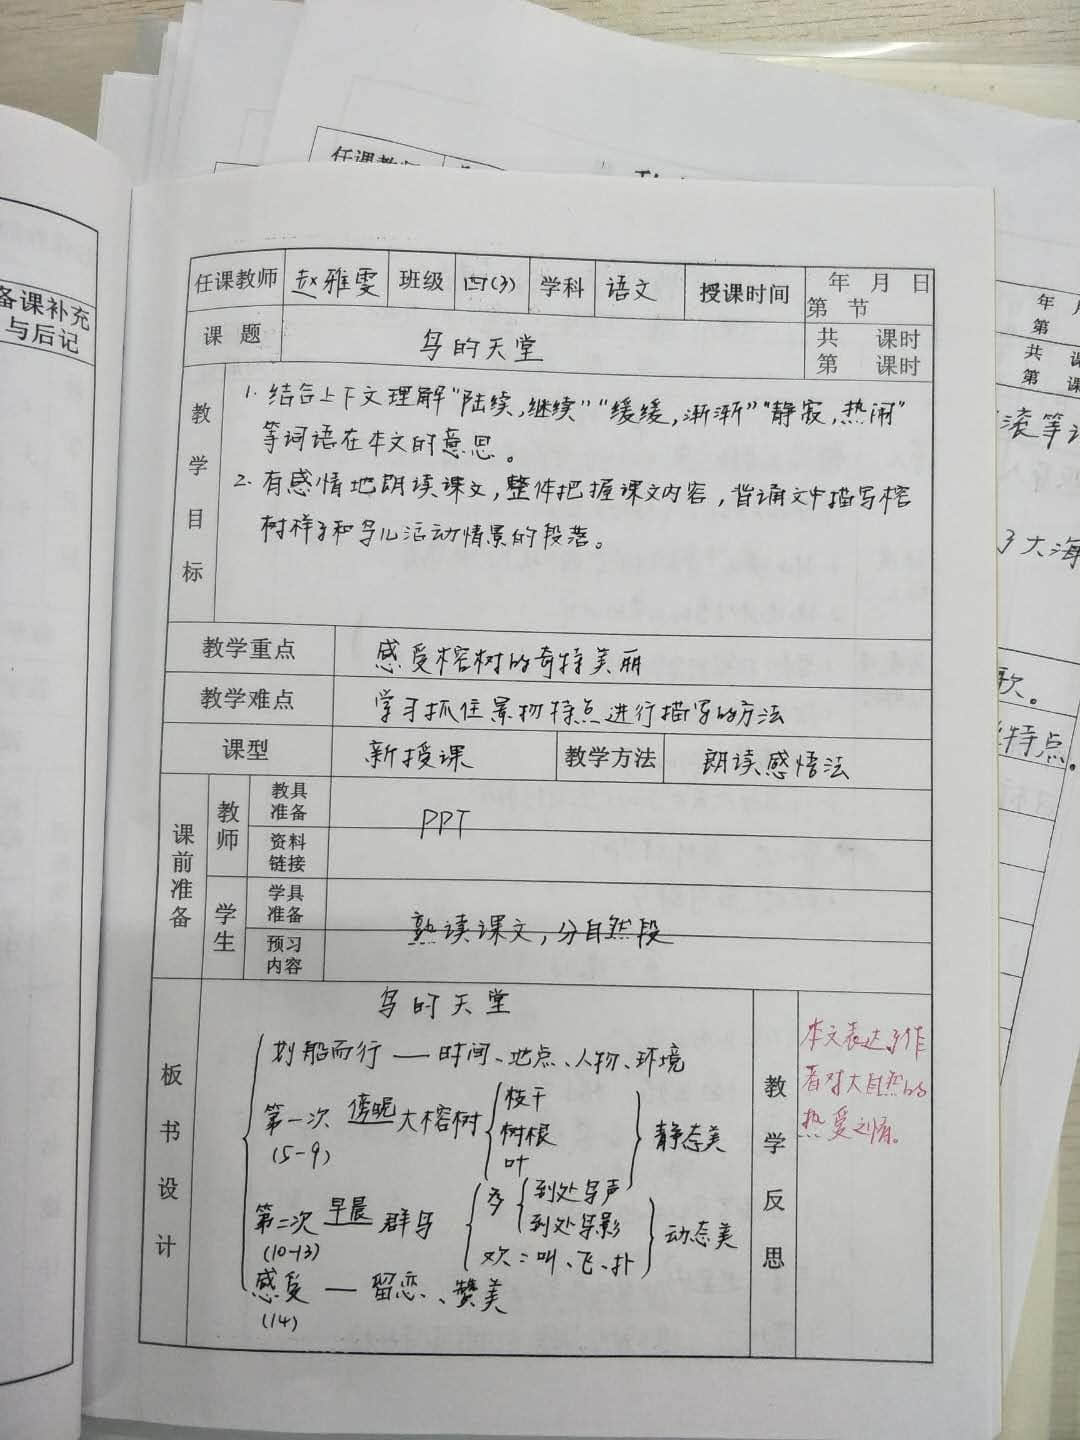 任课教师
备课补充
与后记
任课教师 赵雅雯 班级 四(3) 学科 语文 授课时间 年 月 日
第 节
课 题 鸟的天堂 共 课时
第 课时
教学目标
1. 结合上下文理解“陆续,继续”“缓缓,渐渐”“静寂,热闹”
等词语在本文的意思。
2. 有感情地朗读课文,整体把握课文内容,背诵文中描写榕
树样子和鸟儿活动情景的段落。
教学重点 感受榕树的奇特美丽
教学难点 学习抓住景物特点进行描写的方法
课型 新授课 教学方法 朗读感悟法
课前准备
教师 教具准备 PPT
资料链接
学生 学具准备 熟读课文,分自然段
预习内容
板书设计
鸟的天堂
划船而行 — 时间、地点、人物、环境
第一次 傍晚 大榕树 枝干
树根
叶
静态美
(5-9)
第二次 早晨 群鸟 多 到处鸟声
到处鸟影
欢:叫、飞、扑
动态美
(10-13)
感受 — 留恋、赞美
(14)
教学反思
本文表达了作
者对大自然的
热爱之情。
年 月
第
共 课
第 课
滚等词
了大海
歌。
特点。